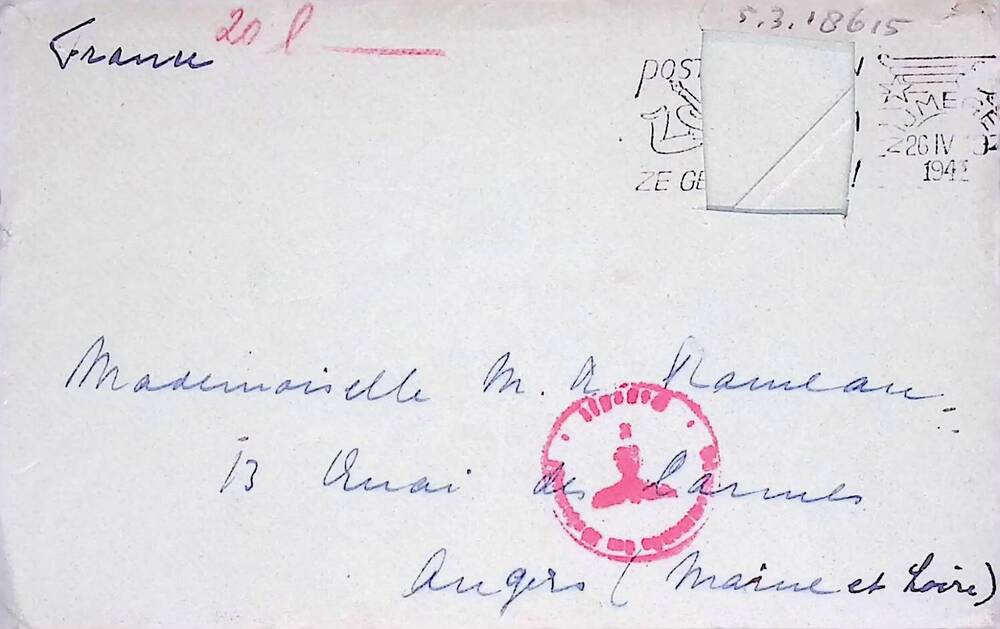 5.3.18615
France 20 l
POST
ZE GE !
NIJMEGEN
26 IV
1941
Mademoiselle M. R. Rameau
13 Quai des Carmes
Angers (Maine et Loire)